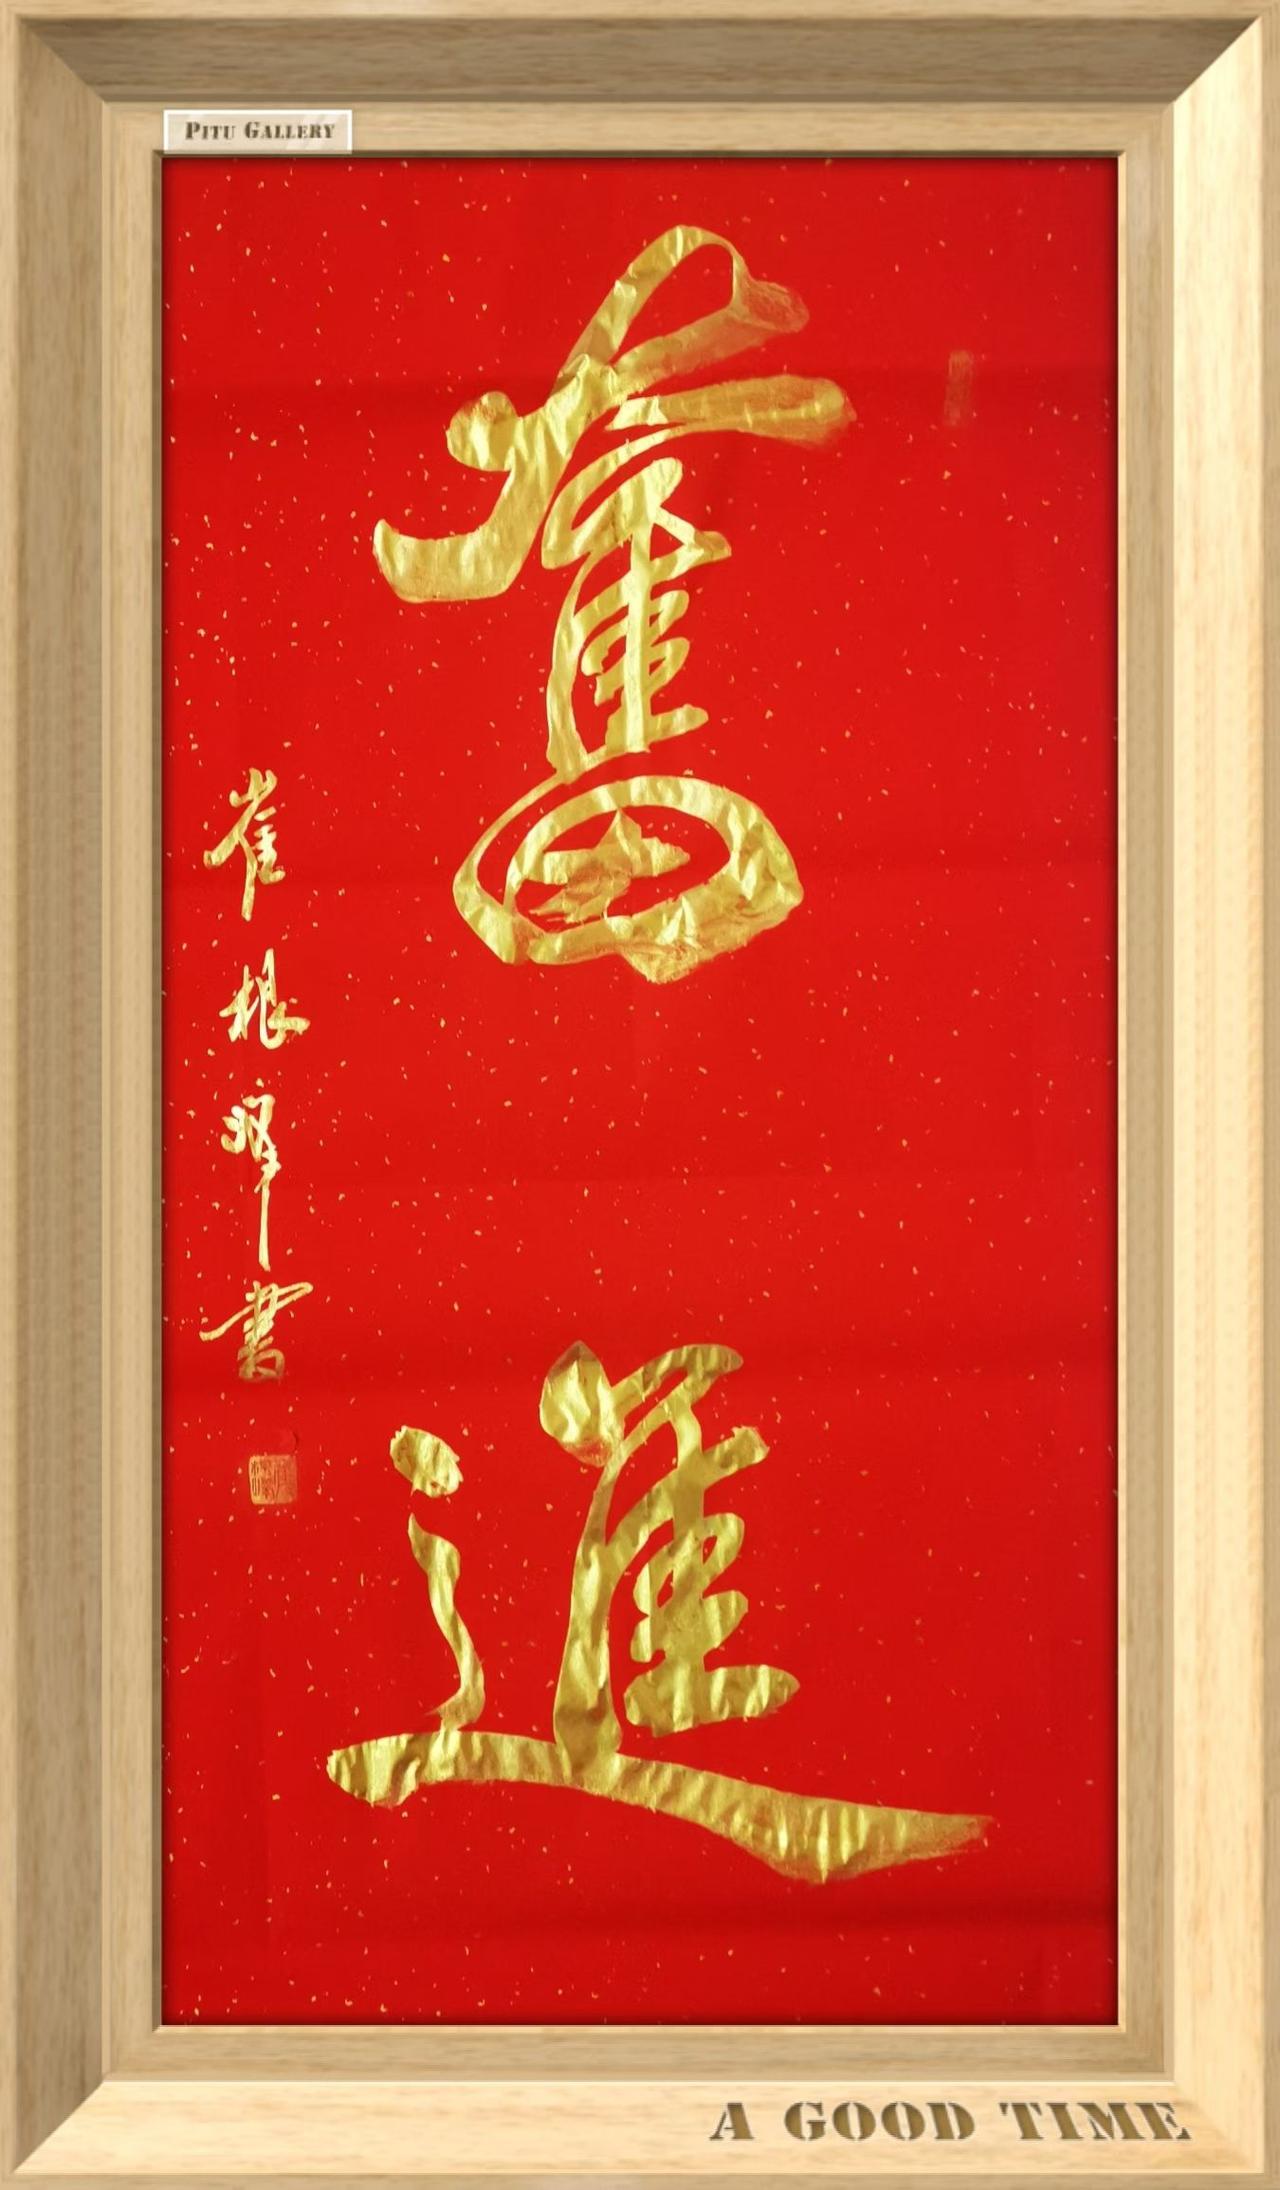 PITU GALLERY
奮進
崔根峄書
A GOOD TIME